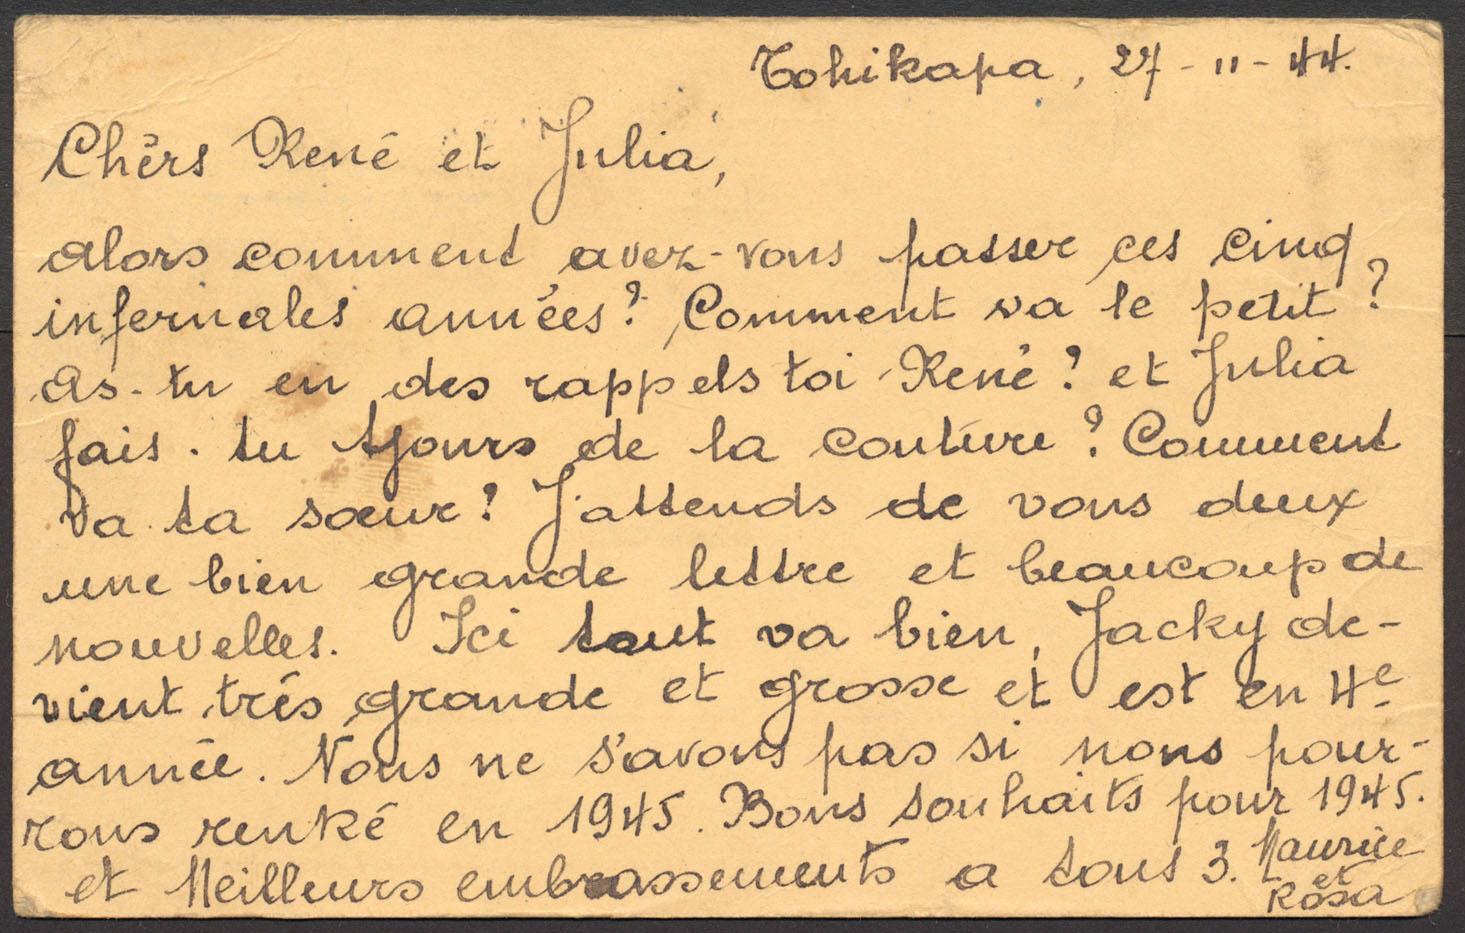 Tohikapa, 27-11-44.
Chèrs René et Julia,
alors comment avez-vous passer ces cinq
infernales années? Comment va le petit?
As-tu eu des rappels toi René? et Julia
fais-tu tjours de la couture? Comment
va ta sœur? J'attends de vous deux
une bien grande lettre et beaucoup de
nouvelles. Ici tout va bien, Jacky de-
vient très grande et grosse et est en 4e
année. Nous ne s'avons pas si nous pour-
rons rentré en 1945. Bons souhaits pour 1945.
et Meilleurs embrassements a tous 3. Maurice
et
Rosa